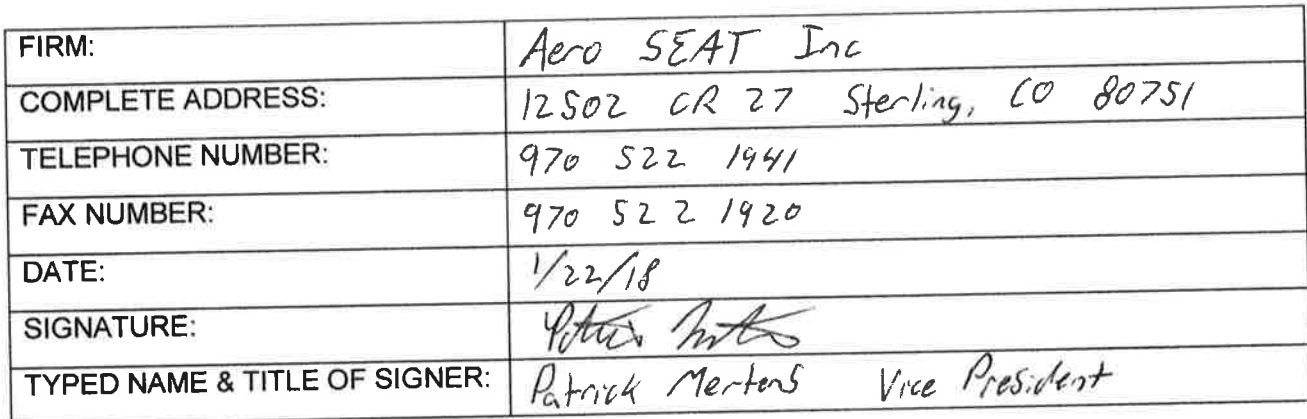 FIRM: Aero SEAT Inc
COMPLETE ADDRESS: 12502 CR 27 Sterling, CO 80751
TELEPHONE NUMBER: 970 522 1941
FAX NUMBER: 970 522 1920
DATE: 1/22/18
SIGNATURE:
TYPED NAME & TITLE OF SIGNER: Patrick Mertens Vice President